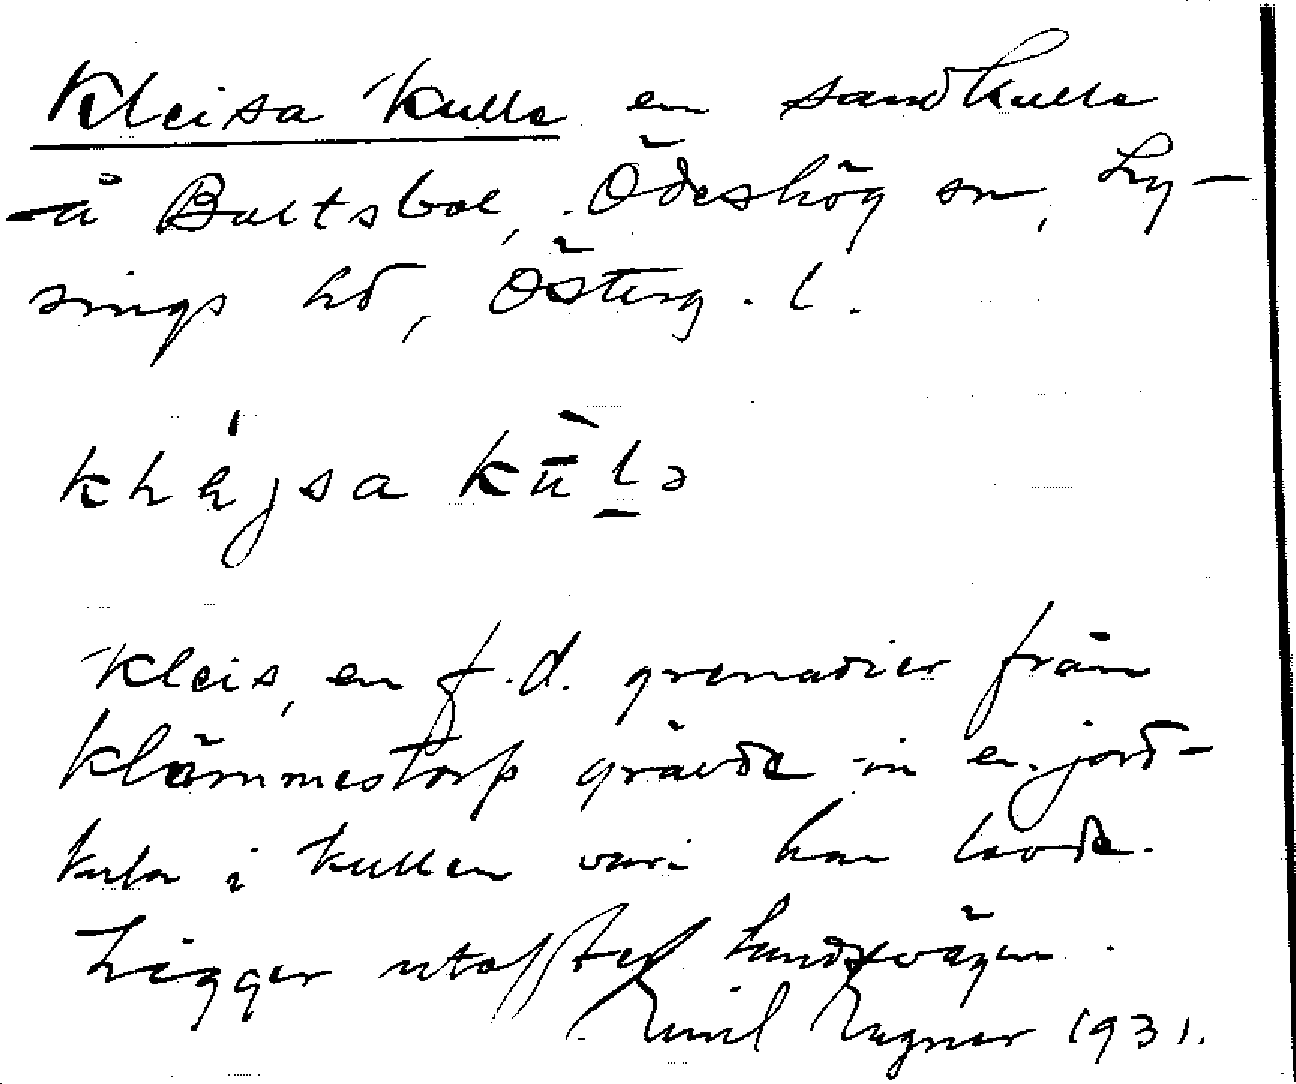 Kleisa kulle en sandkulle
å Bultsbol, Ödeshög sn, Ly-
sings hd, Österg. l.
Kleis, en f.d. grenadier från
Klämmestorp grävde in en jord-
kula i kullen vari han levde.
Ligger utefter landsvägen.
Emil Egner 1931.